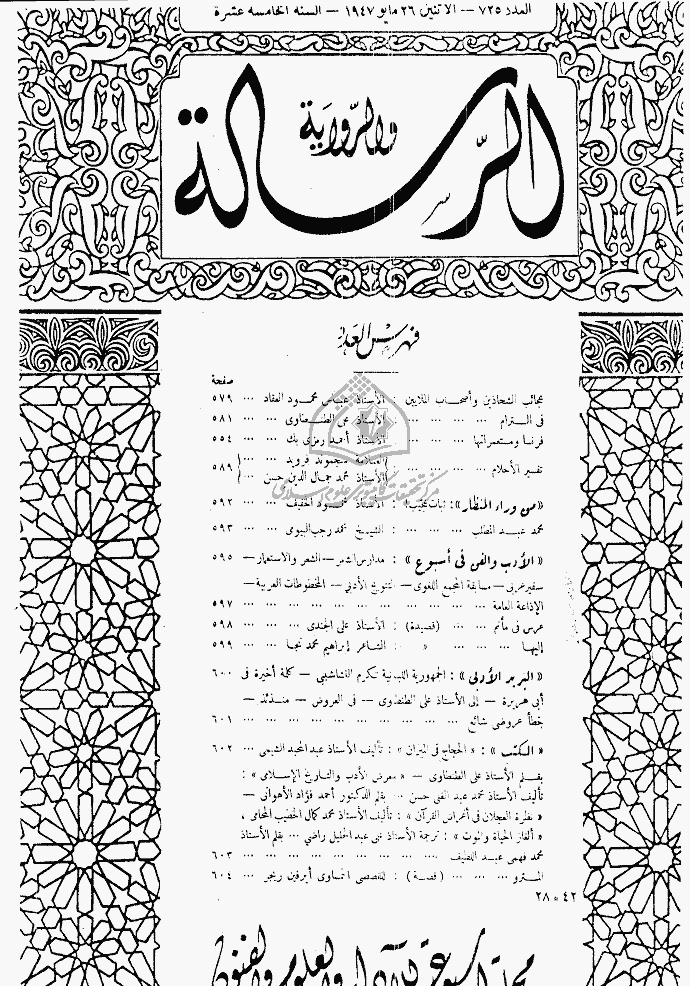 العدد ٧٢٥ — الاثنين ٢٦ مايو ١٩٤٧ — السنة الخامسة عشرة
الرسالة
والرواية
فهرس العدد
صفحة
عجائب الشحاذين وأصحاب الملايين : الأستاذ عباس محمود العقاد ... ٥٧٩
فى الترام ... ... ... ... : الأستاذ على الطنطاوى ... ... ٥٨١
فرنسا ومستعمراتها ... ... ... : الأستاذ أحمد رمزى بك ... ... ٥٥٤
تفسير الأحلام ... ... ... { العلامة سجموند فرويد ... ... } ٥٨٩
الأستاذ محمد جمال الدين حسن ...
« من وراء المنظار » : : الأستاذ محمود الخفيف ... ... ٥٩٢
محمد عبد المطلب ... ... ... : الشيخ محمد رجب البيومى ... ... ٥٩٣
« الأدب والفن فى أسبوع » : مدارس الشعر — الشعر والاستعمار — ٥٩٥
سفير عربى — مسابقة المجمع اللغوى — التتويج الأدبى — المخطوطات العربية —
الإذاعة العامة ... ... ... ... ... ... ... ... ٥٩٧
عرس فى مأتم ... ... ( قصيدة ) : الأستاذ على الجندى ... ... ٥٩٨
إليها ... ... ... « : الشاعر إبراهيم محمد نجا ... ... ٥٩٩
« البريد الأدبى » : الجمهورية اللبنانية تكرم النشاشيبى — كلمة أخيرة فى ٦٠٠
أبى هريرة — إلى الأستاذ على الطنطاوى — فى العروض —
خطأ عروضى شائع ... ... ... ... ... ... ... ... ٦٠١
« الكتب » : « الحجاج فى الميزان » : تأليف الأستاذ عبد المجيد ... ٦٠٢
بقلم الأستاذ على الطنطاوى — « معرض الأدب والتاريخ الإسلامى » :
تأليف الأستاذ محمد عبد الغنى حسن ... بقلم الدكتور أحمد فؤاد الأهوانى —
« نظرة العجلان فى أغراض القرآن » : تأليف الأستاذ محمد كمال الخطيب المحامى ،
« ألغاز الحياة والموت » : ترجمة الأستاذ عبد الجليل راضى ... بقلم الأستاذ
محمد فهمى عبد اللطيف ... ... ... ... ... ... ... ٦٠٣
... ... ( قصة ) : للقصصى النمساوى ... ٦٠٤
٤٢ * ٢٨
مجلة أسبوعية للآداب والعلوم والفنون